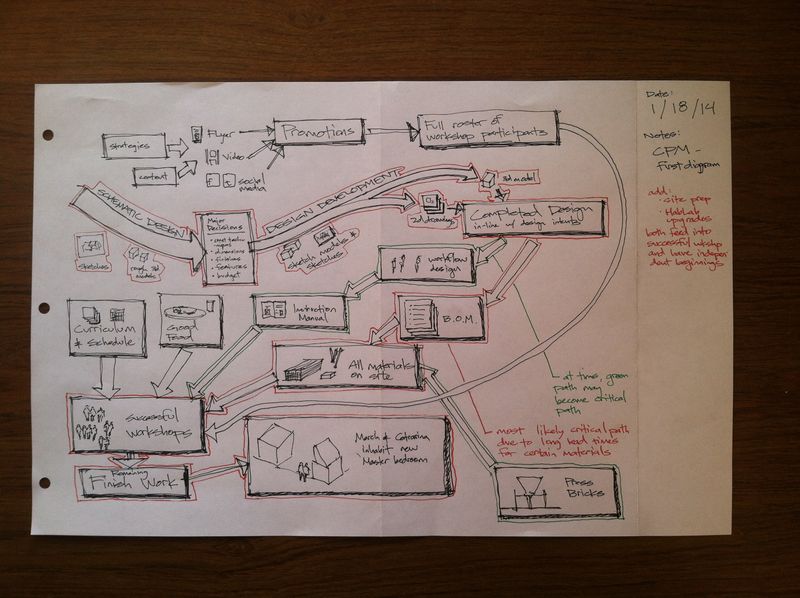 Date:
1/18/14
Notes:
CPM -
First diagram
add:
· site prep
· HabLab
upgrades
both feed into
successful wkshop
and have indepen
dent beginnings
strategies
content
Flyer
Video
social
media
Promotions
Full roster of
workshop participants
SCHEMATIC DESIGN
sketches
rough 3d
models
Major
Decisions
• dimensions
• finishes
• features
• budget
DESIGN DEVELOPMENT
sketch models &
sketches
3d model
2d drawings
Completed Design
in-line w/ design intents
workflow
design
Instruction
Manual
B.O.M.
Curriculum
& Schedule
Good
Food
All materials
on site
at time, green
path may
become critical
path
successful
workshops
most likely critical path
due to long lead times
for certain materials
March & Catarina
inhabit new
Master bedroom
Remaining
Finish Work
Press
Bricks